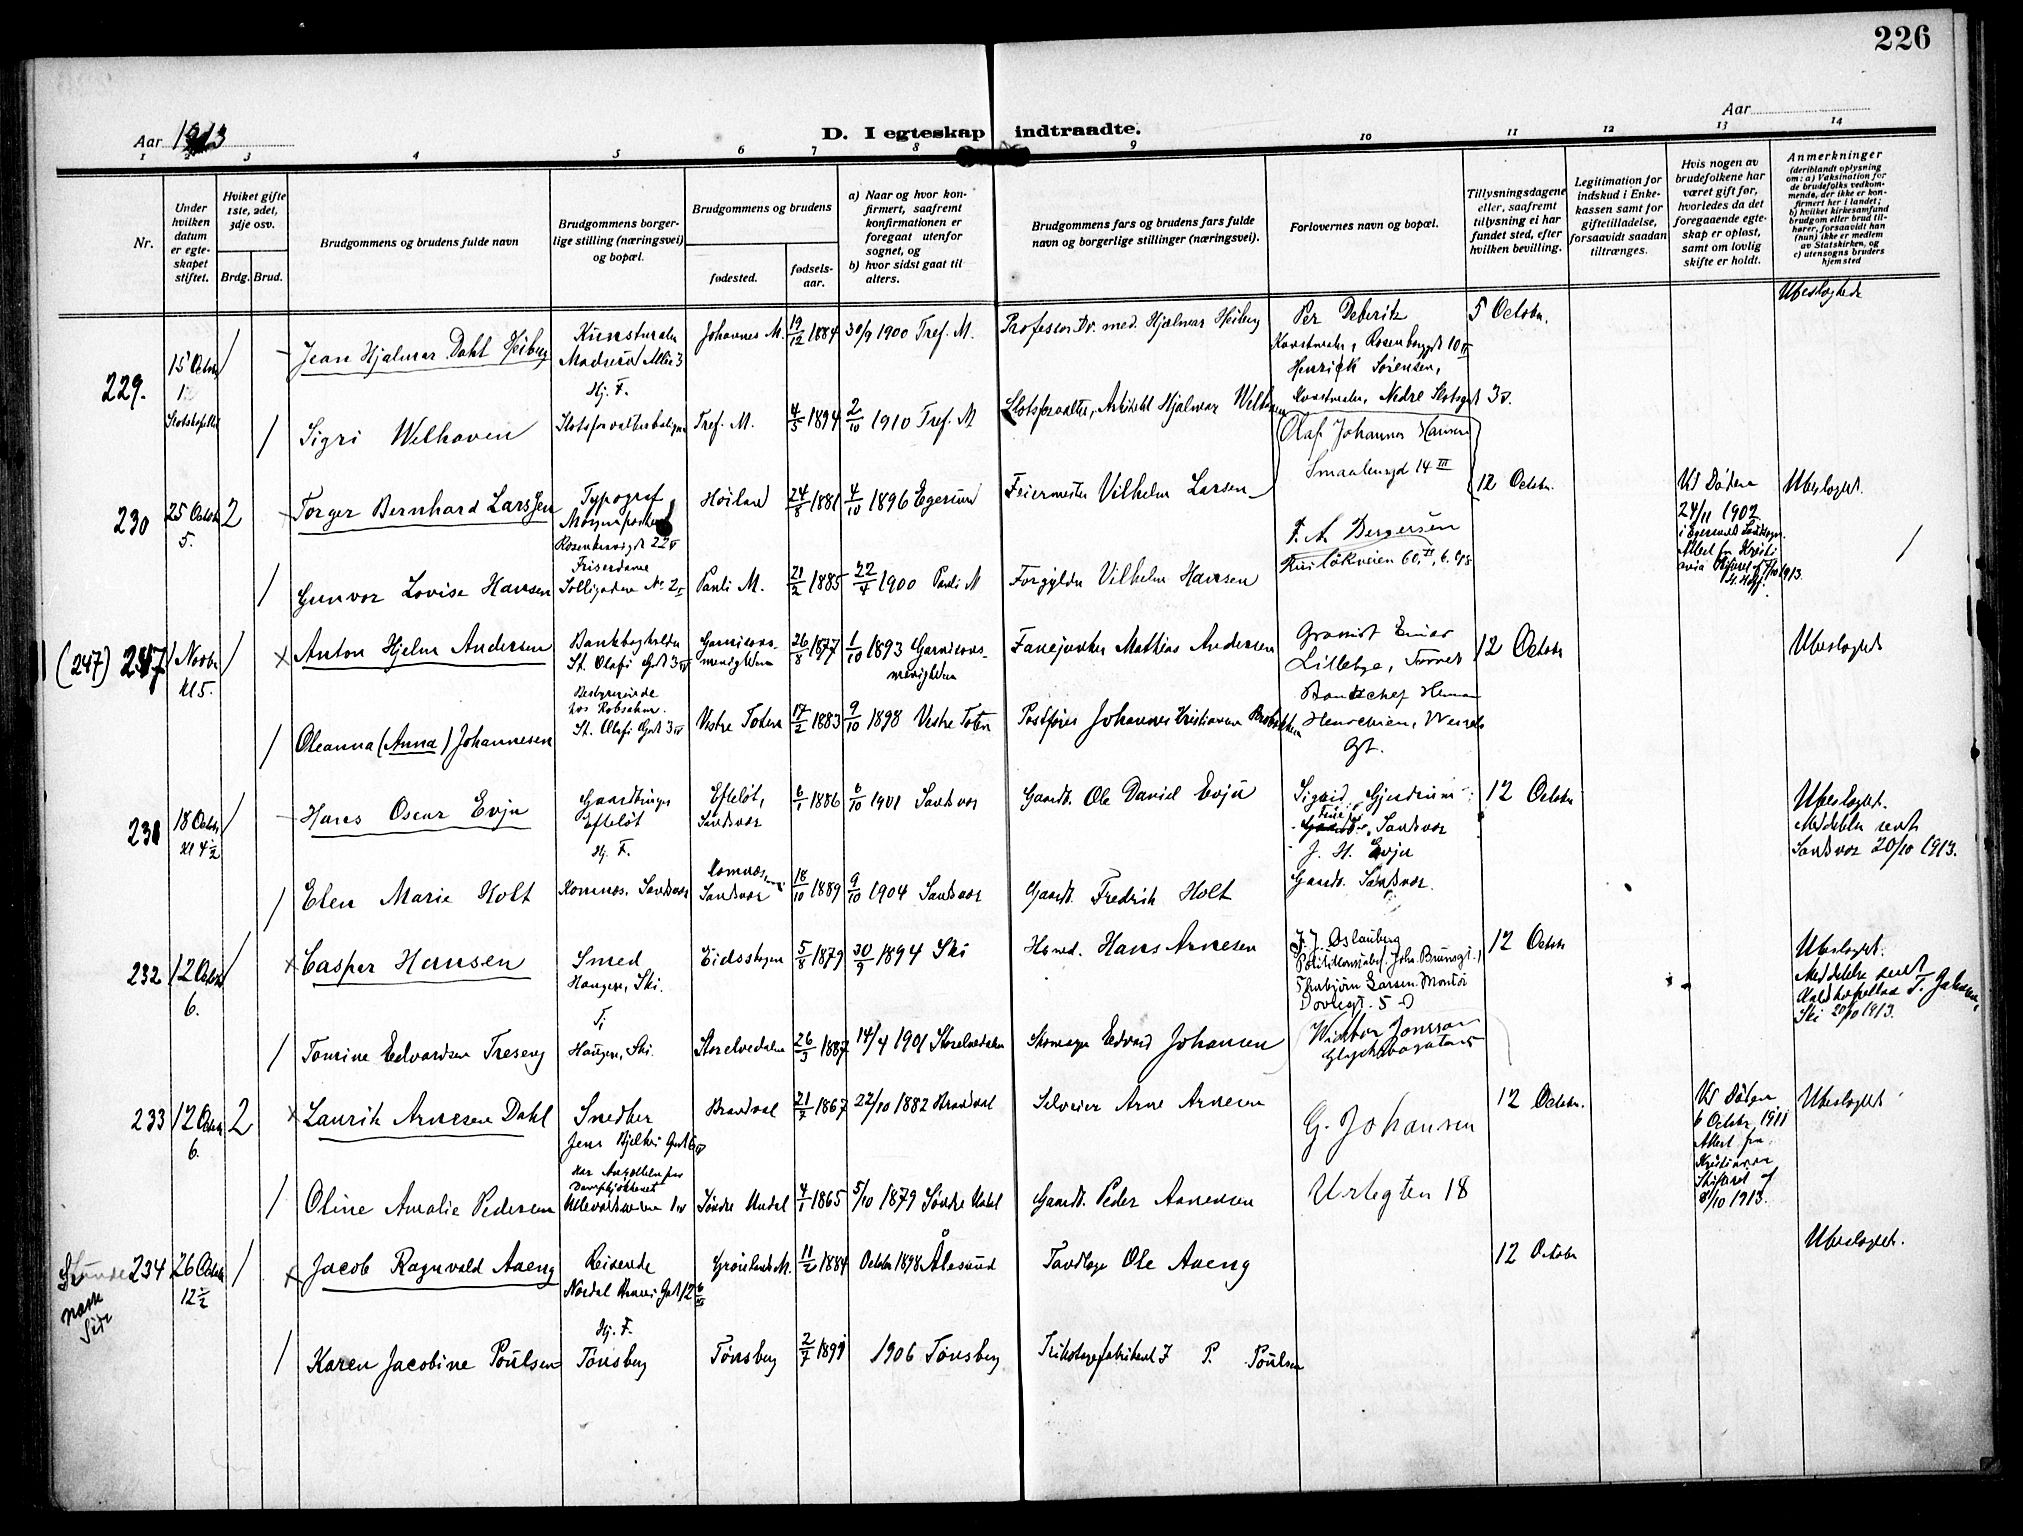 226
Aar 1913
D. I egteskap indtraadte.
Aar
1 2 3 4 5 6 7 8 9 10 11 12 13 14
Nr.
Under hvilken datum er egteskapet stiftet.
Hviket gifte 1ste, 2det, 3dje osv.
Brdg. Brud.
Brudgommens og brudens fulde navn
Brudgommens borgerlige stilling (næringsvei) og bopæl.
Brudgommens og brudens
fødested.
fødselsaar.
a) Naar og hvor konfirmert, saafremt konfirmationen er foregaat utenfor sognet, og
b) hvor sidst gaat til alters.
Brudgommens fars og brudens fars fulde navn og borgerlige stillinger (næringsvei).
Forlovernes navn og bopæl.
Tillysningsdagene eller, saafremt tillysning ei har fundet sted, efter hvilken bevilling.
Legitimation for indskud i Enkekassen samt for giftetilladelse, forsaavidt saadan tiltrænges.
Hvis nogen av brudefolkene har været gift før, hvorledes da det foregaaende egteskap er opløst, samt om lovlig skifte er holdt.
Anmerkninger (deriblandt oplysning om: a) Vaksination for de brudefolks vedkommende, der ikke er konfirmert her i landet; b) hvilket kirkesamfund brudgom eller brud tilhører, forsaavidt han (hun) ikke er medlem av Statskirken, og c) utensogns bruders hjemsted
229. 15 Octbr 1 Slotskapellet / Jean Hjalmar Dahl Heiberg
Kunstmaler Madserud Allé 3 Hj. F.
Johannes M. 19/12 1884 30/9 1900 Tref. M.
Professor Dr. med. Hjalmar Heiberg
Per Deberitz
Kunstmaler, Rosenborggt 10 II
Henrick Sørensen,
Kunstmaler, Nedre Slotsgt 3 V.
5 Octobr.
Ubeslægtede
/ Sigri Welhaven
Slotsforvalterboligen Tref. M. 4/5 1894 2/10 1910 Tref. M
Slotsforvalter, Arkitekt Hjalmar Welhaven
230 25 Octobr 5. 2 Torger Bernhard Larssen
Typograf Morgenposten Rosenkrantzgt 22 V
Høiland 24/8 1881 4/10 1896 Egersund
Feiermester Vilhelm Larsen
Olaf Johannes Hansen
Smaalensgd 14 III
12 Octobr.
Ved Døden 24/11 1902 i Egersund Landsogn. Attest fra Kristiania Skifteret af 7/10 1913.
Ubeslægtet.
/ Gunvor Lovise Hansen
Friserdame Solligaden No 2 II
Pauli M. 21/2 1885 22/4 1900 Pauli M
Forgylder Vilhelm Hansen
F. A. Bergersen
Ruseløkveien 60, II, 6. ops
/
(247) 247 1 Novbr kl 5. / x Anton Hjelm Andersen
Bankbogholder St. Olafs Gt 3 IV
Garnisonsmenigheden 26/8 1877 1/10 1893 Garnisonsmenigheden
Fanejunker Mathias Andersen
Grossist Einar
Lillebye,
12 Octobr
Ubeslægtede
/ Oleanna (Anna) Johannesen
Bestyrerinde hos Robsahm. St. Olafs Gt 3 IV
Vestre Toten 17/2 1883 9/10 1898 Vestre Toten
Postfører Johannes Kristiansen
Bankchef Herman
Gt.
231 18 Octobr kl 4 1/2 / Hans Oscar Evju
Gaardbruger Efteløt Hj. F.
Efteløt, Sandsvær 6/1 1886 6/10 1901 Sandsvær
Gaardb. Ole David Evju
Sigurd Gjerdrum
Sandsvær
J. H. Evju
Gaardb. Sandsvær.
12 Octobr
Ubeslægtet. Meddelelse sendt Sandsvær 20/10 1913.
/ Elen Marie Holt
Komnæs. Sandsvær Komnæs Sandsvær 18/10 1889 9/10 1904 Sandsvær
Gaardb. Fredrik Holt
232 12 Octobr 6. / x Casper Hansen
Smed Haugen, Ski.
Eidsskogen 5/8 1879 30/9 1894 Ski
Hsmd. Hans Arnesen
J. J. Oslauberg
Politikonstabel. Joh. Brunsgt. 1
Thorbjörn Larsen. Montör
Dovregt. 5
12 Octobr
Ubeslægtet. Meddelelse sendt Kaldskapellan T. Ski 20/10 1913.
/ Tomine Edvardsen Treseng
Tj Haugen, Ski. Storelvedalen 26/3 1887 14/4 1901 Storelvedalen
Skomager Edvard Johansen
Wiktor Jonsson
233 12 Octobr 6. 2 x Laurits Arnesen Dahl
Snedker Jens Bjelkes Gt 6 IV
Brandval 21/7 1867 22/10 1882 Brandval
Selveier Arne Arnesen
G. Johansen
Urtegten 18
12 Octobr.
Ved Døden 6 Octobr 1911 Attest fra Kristiania Skifteret af 8/10 1913.
Ubeslægtet
/ Oline Amalie Pedersen
Har Ansættelse paa Dampkjøkkenet Ullevoldsveien 1 IV
Søndre Undal 4/1 1865 5/10 1879 Søndre Undal
Gaardb. Peder Aanensen
234 26 Octobr 12 1/2 / x Jacob Ragnvald Aaeng
Reisende Nordal Bruns Gt 12
Grønlands M. 11/2 1884 October 1898 Ålesund
Tandlæge Ole Aaeng
12 Octobr
Ubeslægtet.
næste Side
/ Karen Jacobine Poulsen
Hj. F. Tønsberg Tønsberg 2/7 1891 1906 Tønsberg
Trikotagefabrikant J P. Poulsen